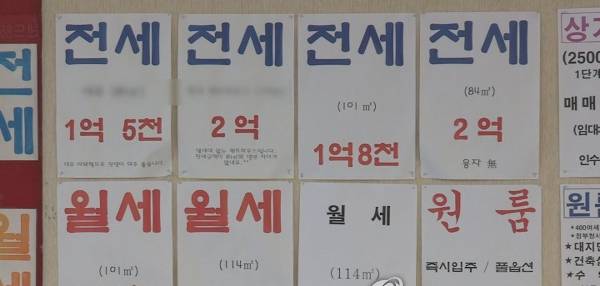 전세
전세
1억 5천
전세
2억
전세
(101㎡)
1억8천
전세
(84㎡)
2억
융자 無
상가
(2500
1단계
매매
(임대
인수
월
월세
(101㎡)
월세
(114㎡)
월세
(114㎡)
원룸
즉시입주 / 풀옵션
원룸
★대지
★건축
★수